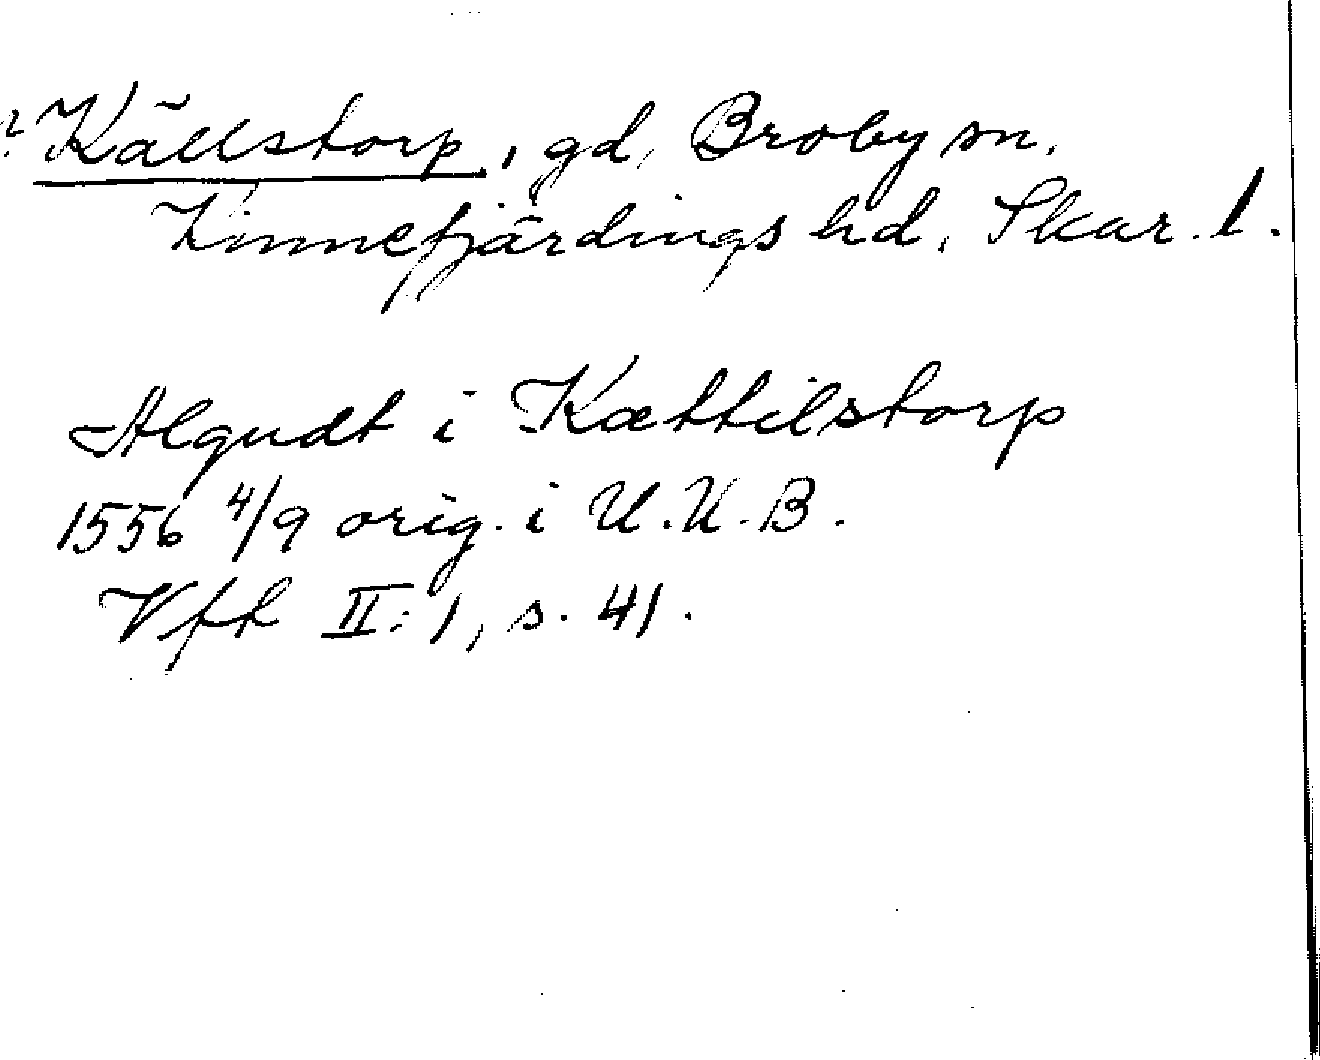 ? Källstorp, gd, Broby sn.
Kinnefjärdings hd, Skar. l.
Algudt i Kættilstorp
1556 4/9 orig. i U.U.B.
Vft II:1, s. 41.